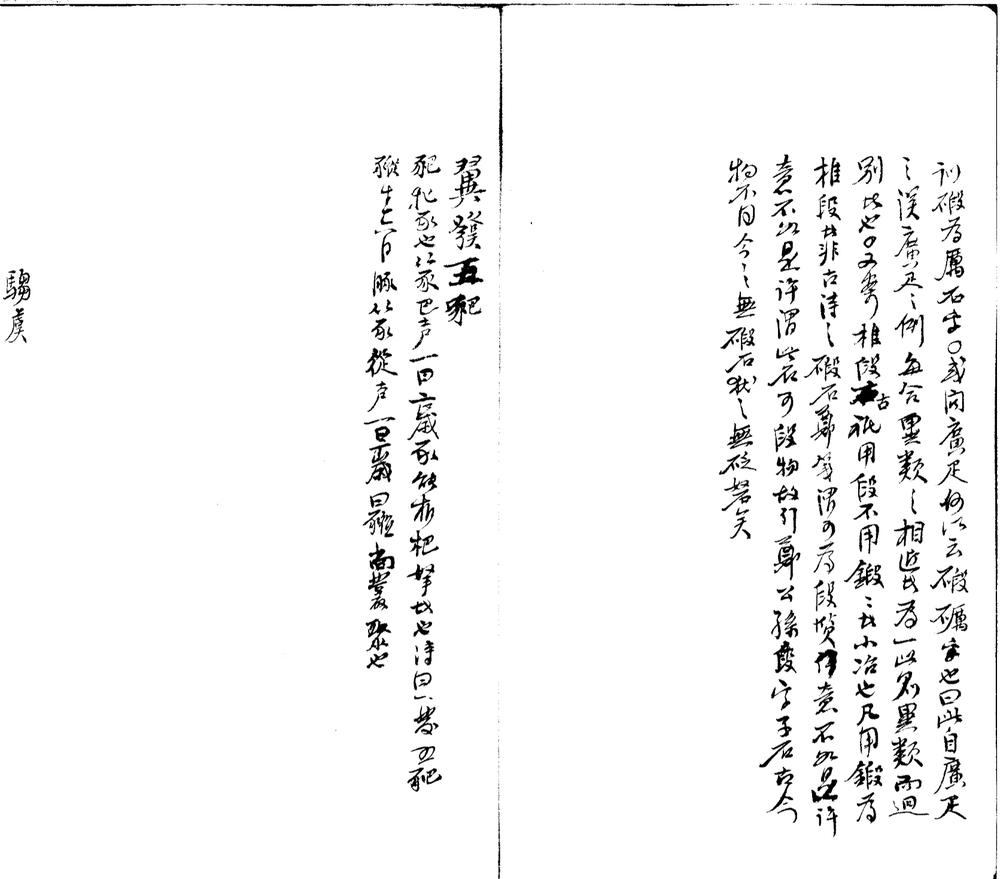 訓碫為厲石乎〇或問廣疋何以云碫礪字也曰此自廣疋
之誤廣疋之例每合異類之相近者為一此則異類而迥
別者也〇又考椎段古祇用段不用鍛鍛者小冶也凡用鍛為
椎段者非古詩之碫石鄭箋謂可為段質意不如是許
意不如是許謂此石可段物故引鄭公孫段字子石古今
物不同今之無碫石猶之無砭砮矣
翼發五豝
豝牝豕也从豕巴声一曰二歲豕能相杷拏者也詩曰一發五豝
豵生六月豚从豕從声一曰一歲曰豵尚叢聚也
騶虞